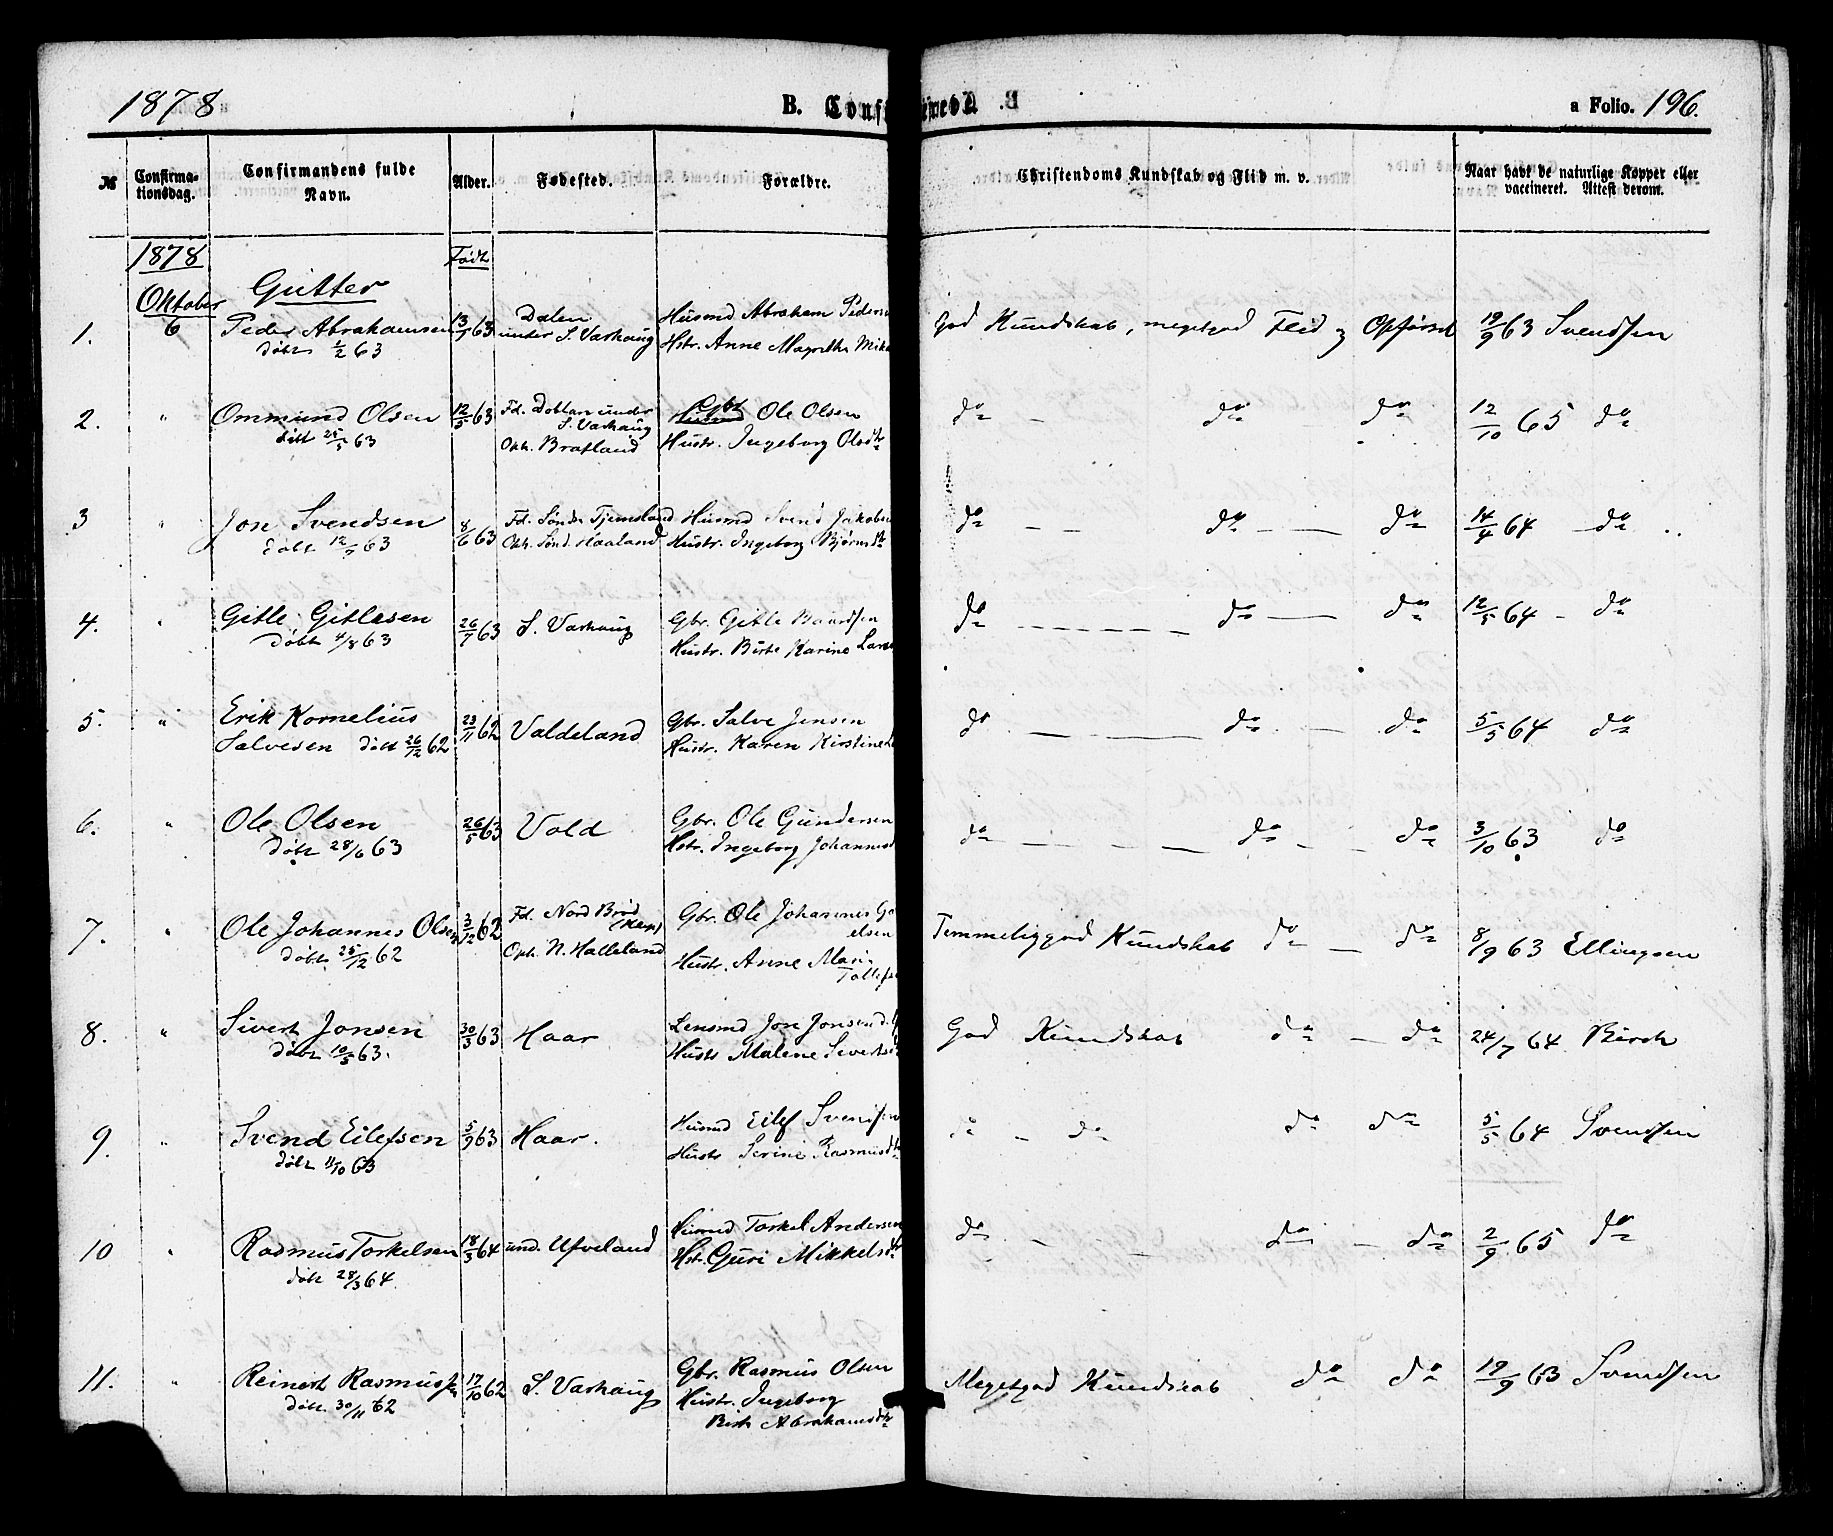 1878 B. Confi a Folio. 196.
№ Confirma-tionsdag. Confirmandens fulde Navn. Alder. Fødested. Forældre. Christendoms Kundskab og Flid m. v. Naar havt de naturlige Kopper eller vaccineret. Attest derom.
1878 Født
Oktober Gutter
1. 6 Peder Abrahamsen 63 Dalen Husmd Abraham Peders god Kundskab, megetgod Flid og Opførsel 19/9 63 Svendsen
døbt 63 under S. Varhaug Hstr. Anne Magrethe Mik
2. " Ommund Olsen 12/5 63 Fd. under Gbr Ole Olsen do — do do 12/10 65 do
S. Varhaug
døbt 25/5 63 Oph. Bratland Hustr. Ingeborg Olsdtr
3 " Jon Svendsen 8/6 63 Fd. Søndr Tjemsland Husmd Svend Jakobsen do — — do — — do 14/4 64 — do
Døbt 12/7 63 Oph. Sønd. Haaland Hustr. Ingeborg Bjørnsdtr
4. " Gitle Gitlesen 26/7 63 S. Varhaug Gbr. Gitle Baardsen do — — — do — do 12/5 64 - do
døbt 4/8 63 Hustr. Birte Karine Lars
5. " Erik Kornelius 23/11 62 Valdeland Gbr. Salve Jensen do — — do — do 5/5 64 do
Salvesen døbt 26/12 62 Hustr. Karen Kirstine
6. " Ole Olsen 26/5 63 Vold Gbr. Ole Gundersen do — — do — — do 3/10 63 do
døbt 28/6 63 Hstr. Ingeborg Johannesd
7. " Ole Johannes Olsen 3/12 62 Fd. Nord Brød Gbr. Ole Johannes Ga Temmeliggod Kundskab do — do 8/9 63 Ellingsen
elsen
døbt 25/12 62 Oph. N. Halleland Hustr. Anne Mari
Tollefs
8. " Sivert Jonsen 63 Haar Lensmd Jon Jonsen God Kundskab do — do 24/7 64 Birch
døbt 10/5 63. Hustr Malene Siverts
9. " Svend Eilefsen 5/9 63 Haar. Husmd Eilef Svendsen do — do do do 5/5 64 Svendsen
døbt 4/10 63 Hustr Serine Rasmusdtr
10 " Rasmus Torkelsen 18/3 64 und. Ufveland Husmd Torkel Andersen do — — do — do 2/9 65 do
døbt 28/3 64 Hstr. Guri Mikkelsdtr
11. " Reinert Rasmussen 17/10 62 S. Varhaug Gbr. Rasmus Olsen Megetgod Kundskab do do 19/9 63 Svendsen
døbt 30/11 62 Hustr. Ingeborg
Birte Abrahamsdtr